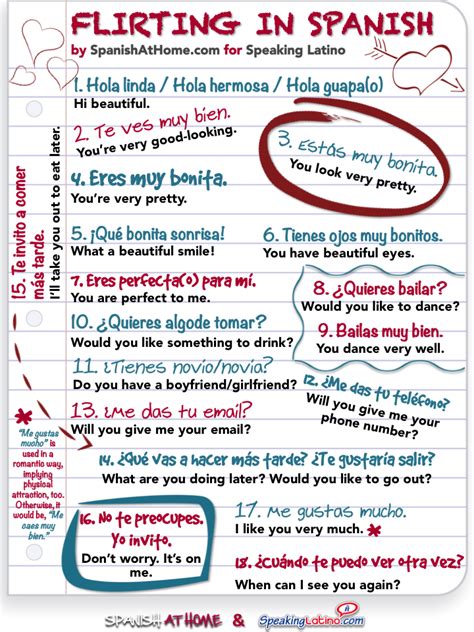 FLIRTING IN SPANISH
by SpanishAtHome.com for Speaking Latino
1. Hola linda / Hola hermosa / Hola guapa(o)
Hi beautiful.
2. Te ves muy bien.
You're very good-looking.
3. Estás muy bonita.
You look very pretty.
4. Eres muy bonita.
You're very pretty.
5. ¡Qué bonita sonrisa!
What a beautiful smile!
6. Tienes ojos muy bonitos.
You have beautiful eyes.
7. Eres perfecta(o) para mí.
You are perfect to me.
8. ¿Quieres bailar?
Would you like to dance?
9. Bailas muy bien.
You dance very well.
10. ¿Quieres algode tomar?
Would you like something to drink?
11. ¿Tienes novio/novia?
Do you have a boyfriend/girlfriend?
12. ¿Me das tu teléfono?
Will you give me your
phone number?
13. ¿Me das tu email?
Will you give me your email?
14. ¿Qué vas a hacer más tarde? ¿Te gustaría salir?
What are you doing later? Would you like to go out?
15. Te invito a comer
más tarde.
I'll take you out to eat later.
16. No te preocupes.
Yo invito.
Don't worry. It's on
me.
17. Me gustas mucho.
I like you very much. *
18. ¿Cuándo te puedo ver otra vez?
When can I see you again?
*
"Me gustas
mucho" is
used in a
romantic way,
implying
physical
attraction, too.
Otherwise, it
would be, "Me
caes muy
bien."
SPANISH AT HOME & SpeakingLatino.com